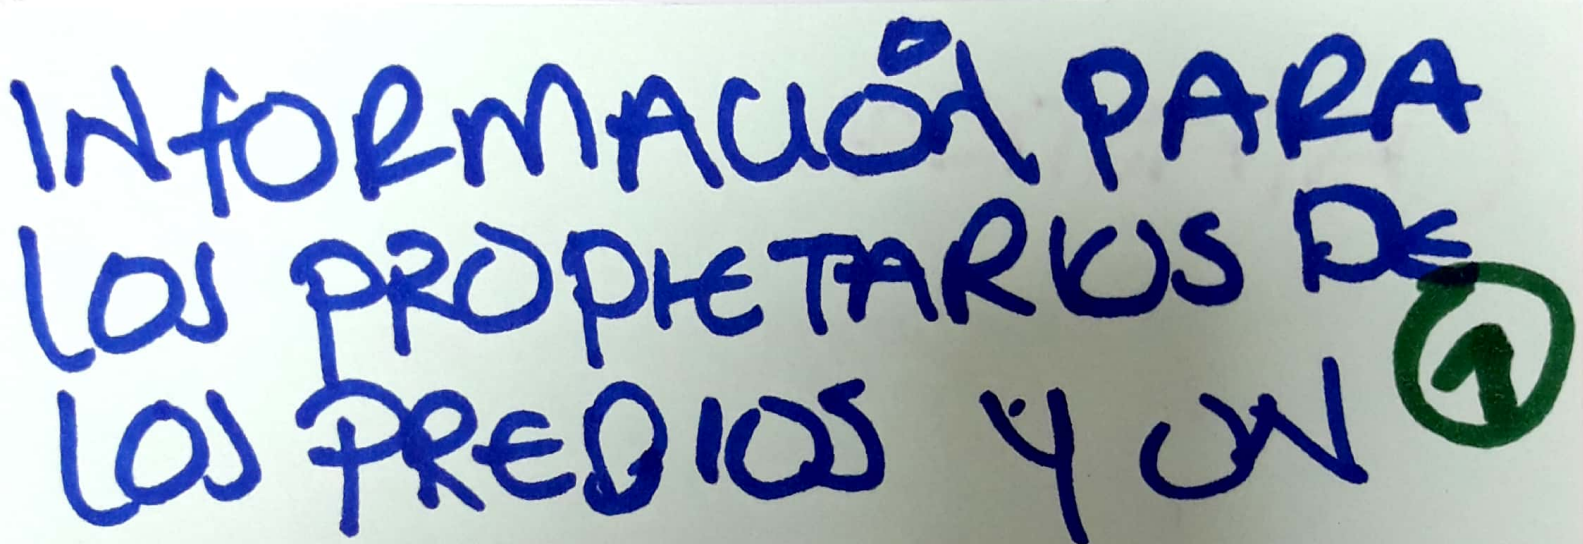 INFORMACIÓN PARA
LOS PROPIETARIOS DE
LOS PREDIOS Y UN
1